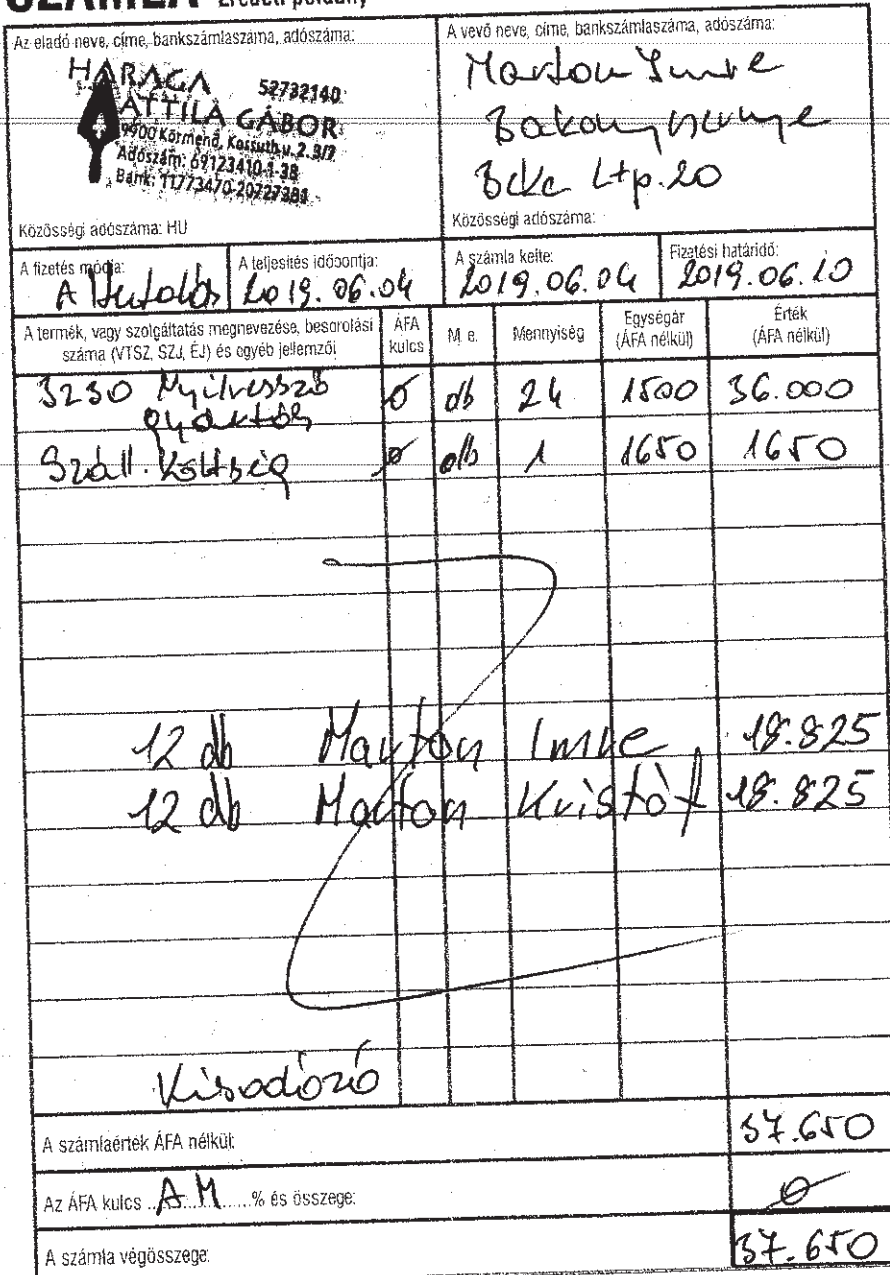 SZÁMLA Eredeti példány
Az eladó neve, címe, bankszámlaszáma, adószáma:
HARAGA 52732140
ATTILA GÁBOR
9900 Körmend, Kossuth u. 2. 3/7
Adószám: 69123410-1-38
Bank: 11773470-20727381
Közösségi adószáma: HU
A vevő neve, címe, bankszámlaszáma, adószáma:
Marton Imre
Bakonyszunye
Béke Ltp. 20
Közösségi adószáma:
A fizetés módja:
Átutalás
A teljesítés időpontja:
2019.06.04
A számla kelte:
2019.06.04
Fizetési határidő:
2019.06.10
A termék, vagy szolgáltatás megnevezése, besorolási száma (VTSZ, SZJ, ÉJ) és egyéb jellemzői
ÁFA kulcs
M. e.
Mennyiség
Egységár (ÁFA nélkül)
Érték (ÁFA nélkül)
3230 Nyílvessző Ø db 24 1500 36.000
gyártás
Száll. költség Ø db 1 1650 1650
12 db Marton Imre 18.825
12 db Marton Kristóf 18.825
Kisadózó
A számlaérték ÁFA nélkül: 37.650
Az ÁFA kulcs ..AM.....% és összege: Ø
A számla végösszege: 37.650